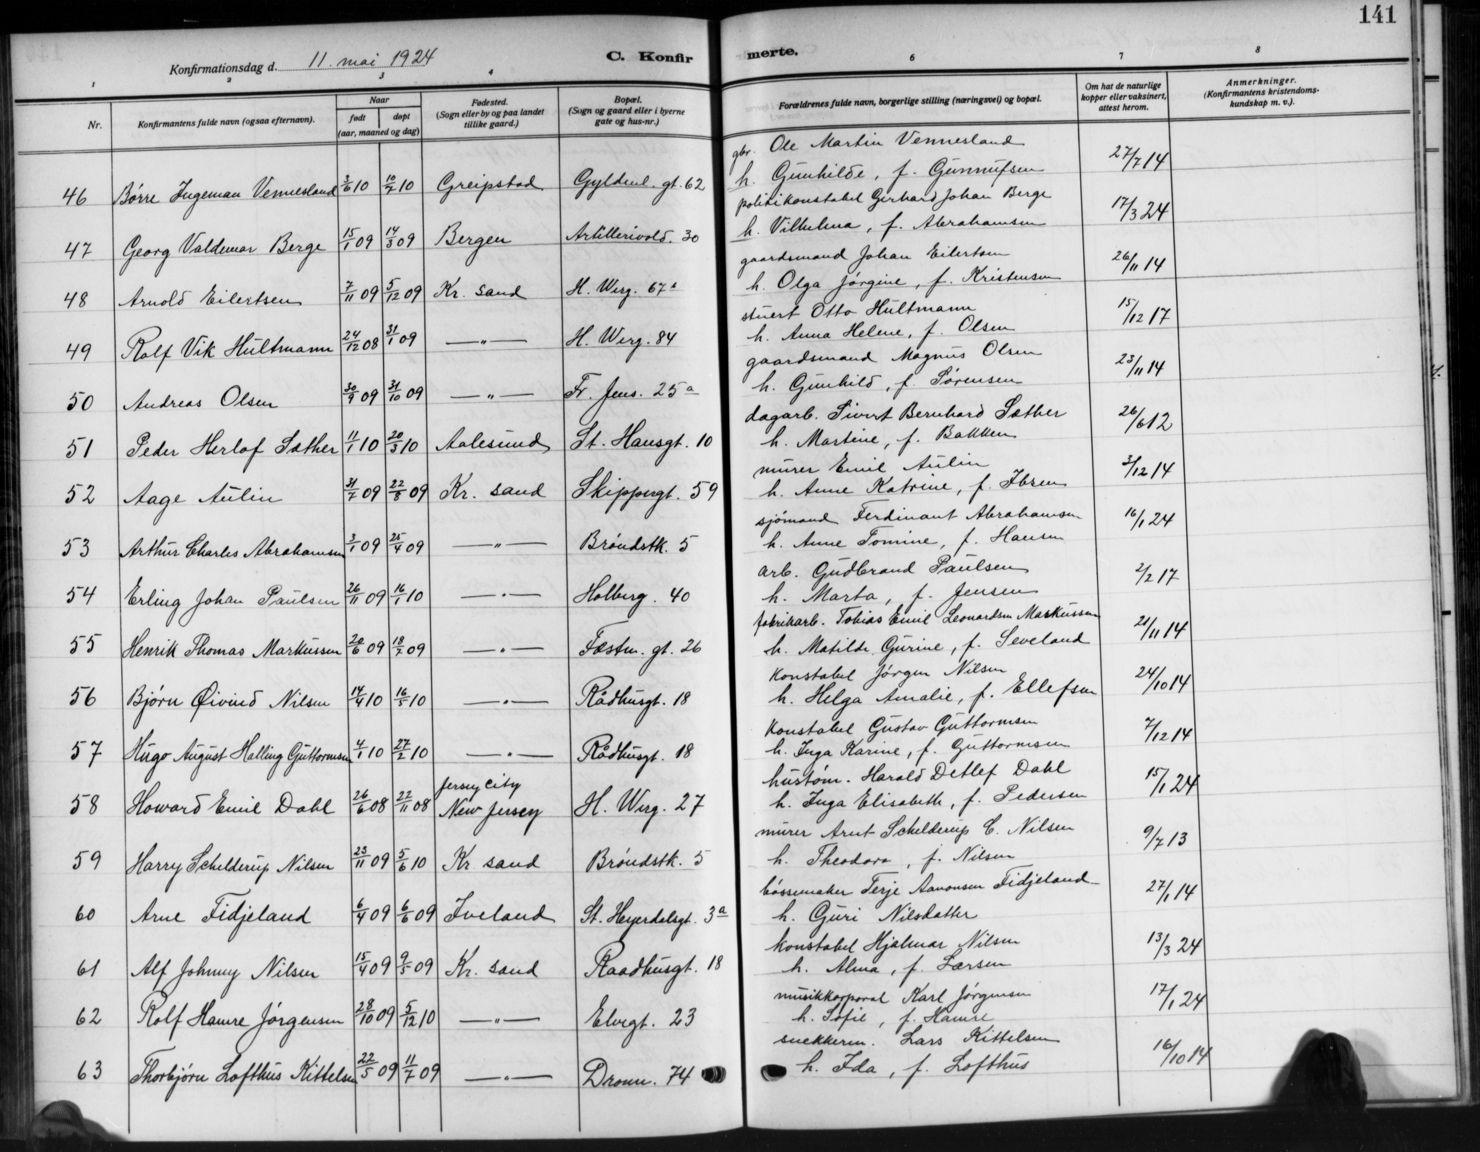 141
Konfirmationsdag d. 11. mai 1924 C. Konfirmerte.
1 2 3 4 6 7 8
Nr. Konfirmantens fulde navn (ogsaa efternavn). Naar født døpt (aar, maaned og dag) Fødested. (Sogn eller by og paa landet tillike gaard.) Bopæl. (Sogn og gaard eller i byerne gate og hus-nr.) Forældrenes fulde navn, borgerlige stilling (næringsvei) og bopæl. Om hat de naturlige kopper eller vaksinert, attest herom. Anmerkninger. (Konfirmantens kristendomskundskap m. v.).
gbr. Ole Martin Vennesland
46 Børre Ingeman Vennesland 3/6 10 10/7 10 Greipstad Gyldenl. gt. 62 h. Gunhilde, f. Gunnufsen 27/7 14
politikonstabel Gerhard Johan Berge
47 Georg Valdemar Berge 15/1 09 14/3 09 Bergen Artillerivold. 30 h. Vilhelma, f. Abrahamsen 17/3 24
gaardsmand Johan Eilertsen
48 Arnold Eilertsen 7/11 09 5/12 09 Kr. sand H. Werg. 67a h. Olga Jørgine, f. Kristensen 26/11 14
stuert Otto Hultmann
49 Rolf Vik Hultmann 24/12 08 31/1 09 —"— H. Werg. 84 h. Anna Helene, f. Olsen 15/12 17
gaardsmand Magnus Olsen
50 Andreas Olsen 30/9 09 31/10 09 —"— Fr. Jens. 25a h. Gunhild, f. Sørensen 23/11 14
dagarb. Sivert Bernhard Sæther
51 Peder Herlof Sæther 11/1 10 20/3 10 Aalesund St. Hansgt. 10 h. Martine, f. Bakken 26/6 12
murer Emil Aulin
52 Aage Aulin 31/7 09 22/8 09 Kr. sand Skippergt. 59 h. Anne Katrine, f. Ibsen 3/12 14
sjømand Ferdinant Abrahamsen
53 Arthur Charles Abrahamsen 3/1 09 25/4 09 —"— Brøndstk. 5 h. Anne Tomine, f. Hansen 16/1 24
arb. Gudbrand Paulsen
54 Erling Johan Paulsen 26/11 09 16/1 10 —"— Holberg. 40 h. Marta, f. Jensen 2/2 17
fabrikarb. Tobias Emil Leonardsen Markussen
55 Henrik Thomas Markussen 20/6 09 18/7 09 —"— Fæstn. gt. 26 h. Matilde Gurine, f. Seveland 21/11 14
konstabel Jørgen Nilsen
56 Bjørn Øivind Nilsen 14/4 10 16/5 10 —"— Rådhusgt. 18 h. Helga Amalie, f. Ellefsen 24/10 14
konstabel Gustav Guttormsen
57 Hugo August Halling Guttormsen 4/1 10 27/2 10 —"— Rådhusgt. 18 h. Inga Karine, f. Guttormsen 7/12 14
hustøm. Harald Detlef Dahl
58 Howard Emil Dahl 26/6 08 22/11 08 Jersey City New Jersey H. Werg. 27 h. Inga Elisabeth, f. Pedersen 15/1 24
murer Arnt Schelderup C. Nilsen
59 Harry Schelderup Nilsen 23/11 09 5/6 10 Kr sand Brøndstk. 5 h. Theodora, f. Nilsen 9/7 13
bøssemaker Terje Aanonsen Fidjeland
60 Arne Fidjeland 6/4 09 6/6 09 Iveland St. Heyerdalsgt. 3a h. Guri Nilsdatter 27/1 14
konstabel Hjalmar Nilsen
61 Alf Johnny Nilsen 15/4 09 9/5 09 Kr. sand Raadhusgt. 18 h. Alma, f. Larsen 13/3 24
musikkorporal Karl Jørgensen
62 Rolf Hamre Jørgensen 28/10 09 5/12 10 —"— Elvegt. 23 h. Sofie, f. Hamre 17/1 24
snekkerm. Lars Kittelsen
63 Thorbjørn Lofthus Kittelsen 22/5 09 11/7 09 —"— Dronn. 74 h. Ida, f. Lofthus 16/10 14